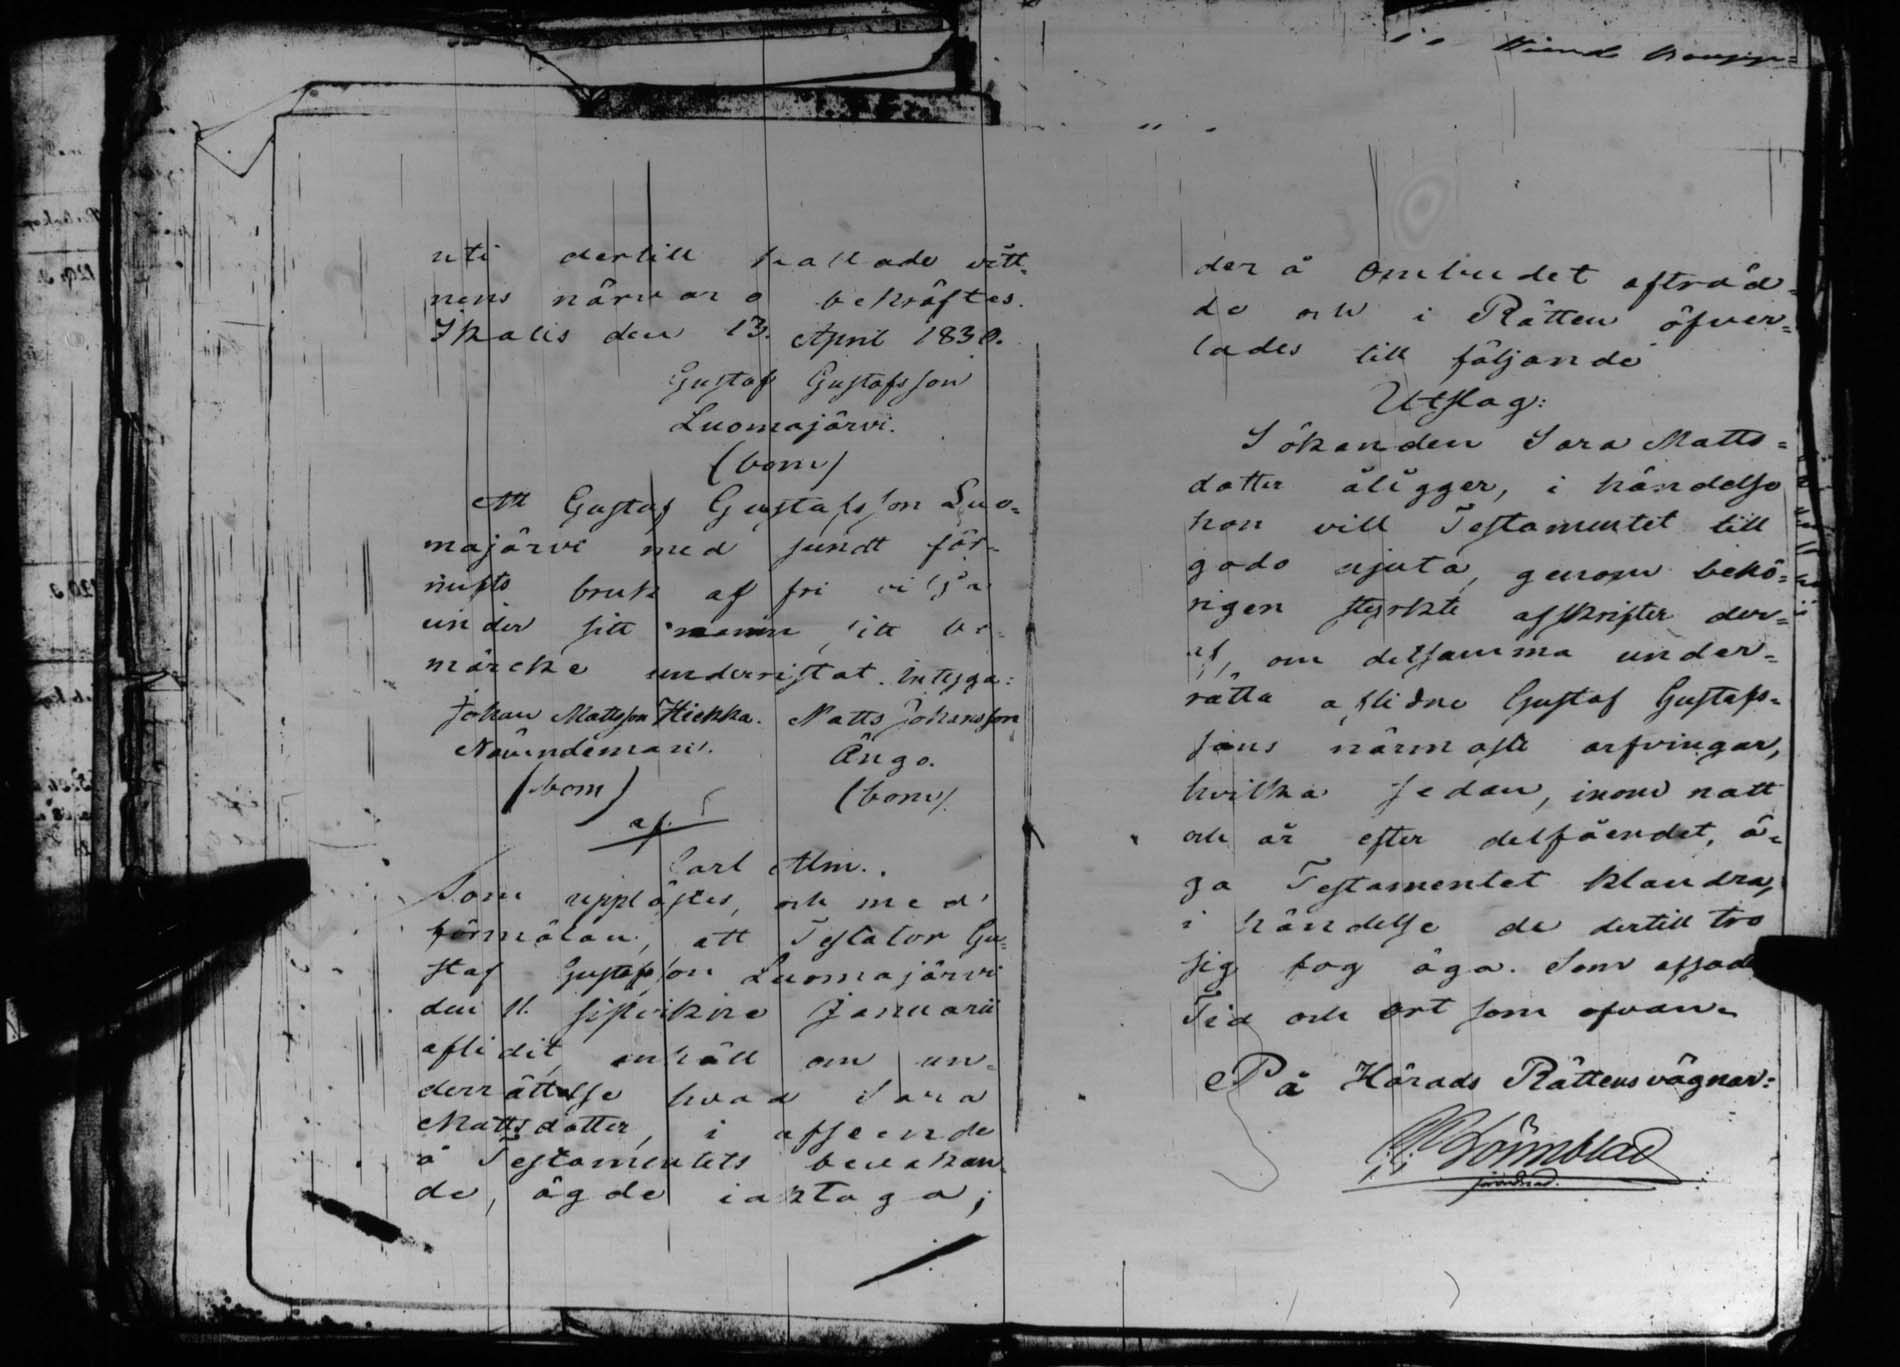 uti dertill kallade vitt-
nens närvaro bekräftes.
Ikalis den 13. April 1830.
Gustaf Gustafsson
Luomajärvi.
(bom)
Att Gustaf Gustafsson Luo-
majärvi med sundt för-
nufts bruk af fri vilja
under sitt namn sitt bo-
märcke underristat. Intyga:
Johan Mattsson Hiekka. Matts Johansson
Nämndeman. Ängo.
(bom) (bom)
af
Carl Alm.
Som upplästes, och med
förmälan, att Testator Gu-
staf Gustafsson Luomajärvi
den 11. sistvikne Januarii
aflidit, anhåll om un-
derrättelse hvad Sara
Mattsdotter, i afseende
å Testamentets bevakan-
de, ägde iakttaga;
der å Ombudet afträd-
de och i Rätten öfver-
lades till följande
Utslag:
Sökanden Sara Matts-
dotter åligger, i händelse
hon vill Testamentet till
godo njuta, genom behö-
rigen styrkte afskrifter der-
af, om detsamma under-
rätta aflidne Gustaf Gustafs-
sons närmaste arfvingar,
hvilka sedan, inom natt
och år efter delfåendet, ä-
ga Testamentet klandra,
i händelse de dertill tro
sig fog äga. Som afsade
Tid och Ort som ofvan.
På Härads Rättens vägnar: